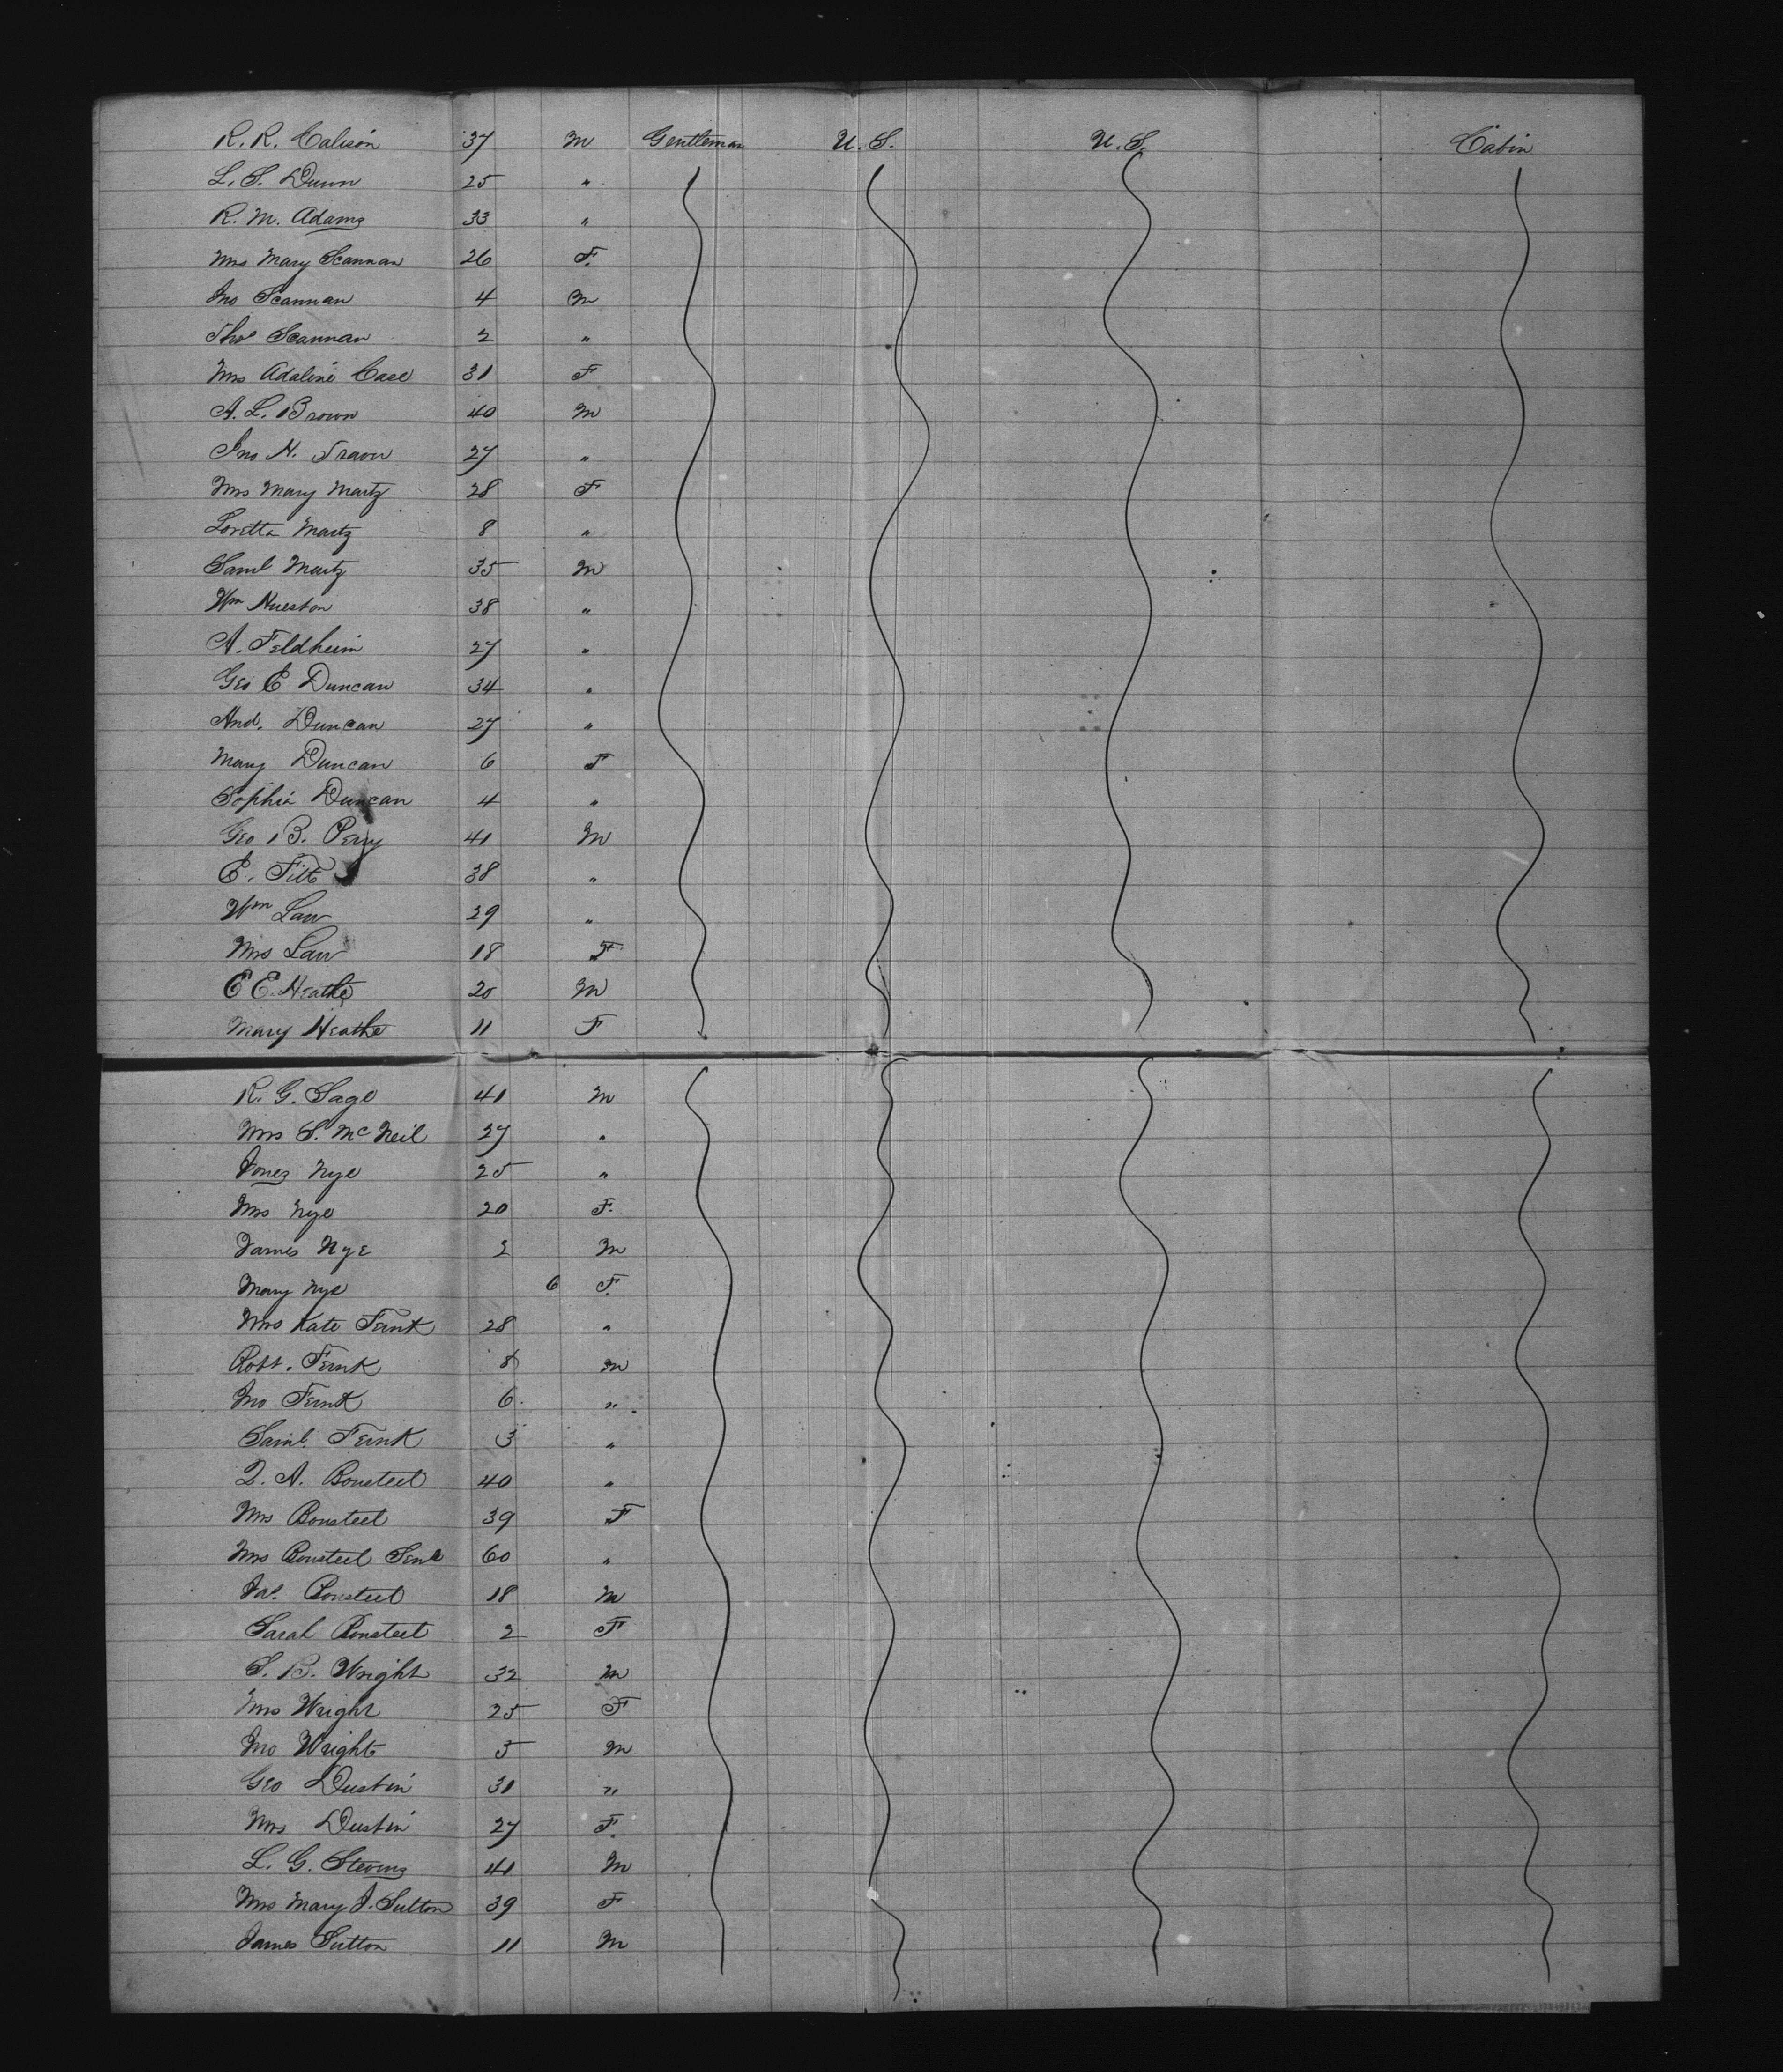 R. R. Calison 37 M Gentleman U. S. U. S. Cabin
L. S. Dunn 25 "
R. M. Adams 33 "
Mrs Mary Scannan 26 F.
Jno Scannan 4 M
Thos Scannan 2 "
Mrs Adaline Case 31 F
A. L. Brown 40 M
Jno H. Traver 27 "
Mrs Mary Martz 28 F
Loretta Martz 8 "
Saml Martz 35 M
Wm Hueston 38 "
A. Feldheim 27 "
Geo E Duncan 34 "
And. Duncan 27 "
Mary Duncan 6 F
Sophia Duncan 4 "
Geo B. Perry 41 M
E. Tilt 38 "
Wm Law 29 "
Mrs Law 18 F
E E. Heathe 20 M
Mary Heathe 11 F
R. G. Sage 41 M
Mrs S. McNeil 27 "
Jones Nye 25 "
Mrs Nye 20 F.
James Nye 2 M
Mary Nye 6 F.
Mrs Kate Fenk 28 "
Robt. Fenk 8 M
Jno Fenk 6 "
Saml. Fenk 3 "
Q. A. Bonsteel 40 "
Mrs Bonsteel 39 F
Mrs Bonsteel 60 "
Jas. Bonsteel 18 M
Sarah Bonsteel 2 F
S. B. Wright 32 M
Mrs Wright 25 F
Jno Wright 5 M
Geo Dustin 31 "
Mrs Dustin 27 F.
L. G. Stevens 41 M
Mrs Mary J. Sutton 39 F
James Sutton 11 M